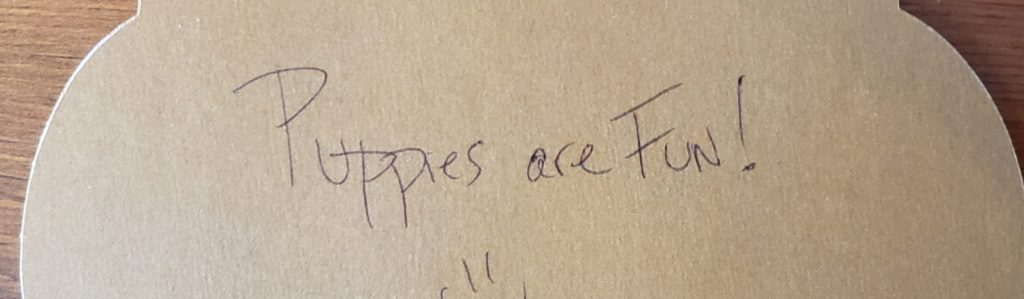 Puppies are Fun!